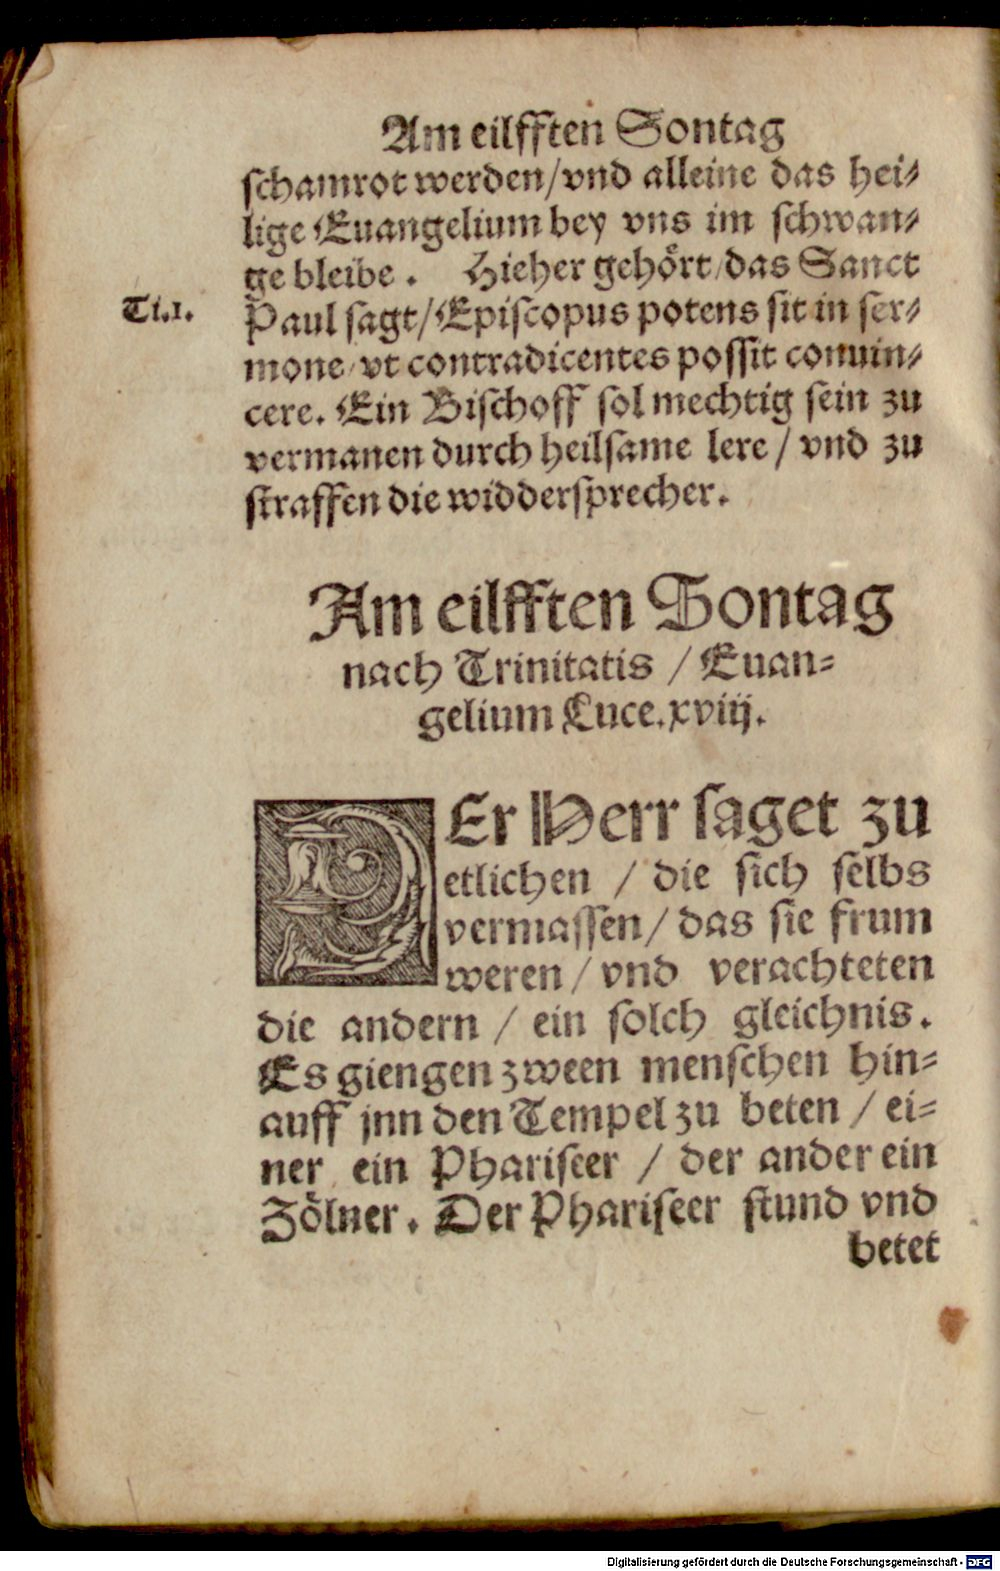 Am eilfften Sontag
schamrot werden/vnd alleine das hei⸗
lige Euangelium bey vns im schwan⸗
ge bleibe. Hieher gehört/das Sanct
Ti.1.
Paul sagt/Episcopus potens sit in ser⸗
mone/vt contradicentes possit conuin⸗
cere. Ein Bischoff sol mechtig sein zu
vermanen durch heilsame lere/vnd zu
straffen die widdersprecher.
Am eilfften Sontag
nach Trinitatis/Euan⸗
gelium Luce.xviij.
DEr Herr saget zu
etlichen/die sich selbs
vermassen/das sie frum
weren/vnd verachteten
die andern/ein solch gleichnis.
Es giengen zween menschen hin⸗
auff jnn den Tempel zu beten/ei⸗
ner ein Phariseer/der ander ein
Zölner. Der Phariseer stund vnd
betet
Digitalisierung gefördert durch die Deutsche Forschungsgemeinschaft - DFG